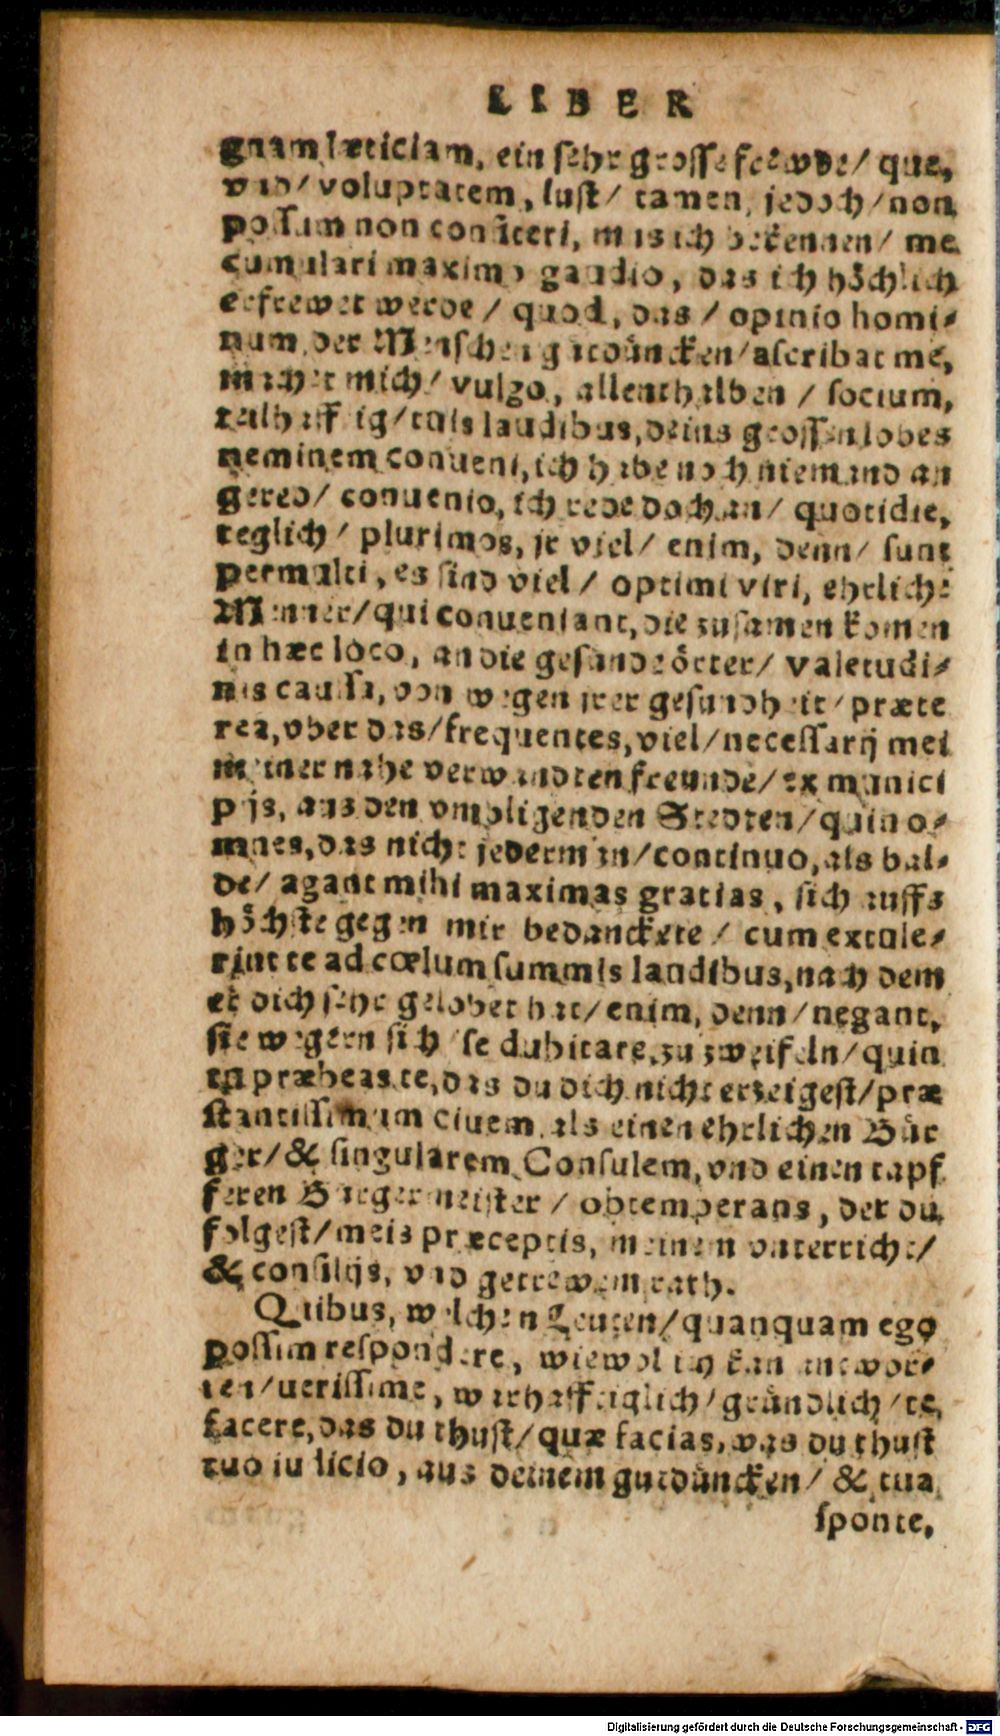 LIBER
gnam læticiam, ein sehr grosse frewde/ que,
vnd/ voluptatem, lust/ tamen, jedoch/ non
possum non confiteri, mus ich bekennen/ me
cumulari maximo gaudio, das ich höchlich
erfrewet werde/ quod, das/ opinio homi-
num, der Menschen gutdüncken/ ascribat me,
machet mich/ vulgo, allenthalben/ socium,
teilhafftig/ tuis laudibus, deins grossen lobes
neminem conueni, ich habe noch niemand an
gered/ conuenio, ich rede doch an/ quotidie,
teglich/ plurimos, jr viel/ enim, denn/ sunt
permulti, es sind viel/ optimi viri, ehrliche
Menner/ qui conueniant, die zusamen komen
in hæc loco, an die gesande örter/ valetudi-
nis caussa, von wegen jrer gesundheit/ præte
rea, vber das/ frequentes, viel/ necessarij mei
meiner nahe verwandten freunde/ ex munici
pijs, aus den vmbligenden Stedten/ quin o-
mnes, das nicht jederman/ continuo, als bal-
de/ agant mihi maximas gratias, sich auffs
höchste gegen mir bedanckete/ cum extule-
rint te ad cœlum summis laudibus, nach dem
er dich sehr gelobet hat/ enim, denn/ negant,
sie wegern sich/ se dubitare, zu zweifeln/ quin
tu præbeas te, das du dich nicht erzeigest/ præ
stantissimum Ciuem, als einen ehrlichen Bür
ger/ & singularem Consulem, vnd einen tapf
feren Bürgermeister/ obtemperans, der du
folgest/ meis præceptis, meinem vnterricht/
& consilijs, vnd getrewem rath.
Quibus, welchen Leuten/ quanquam ego
possim respondere, wiewol ich kan antwor-
ten/ uerissime, warhafftiglich/ gründlich/ te
facere, das du thust/ quæ facias, was du thust
tuo iudicio, aus deinem gutdüncken/ & tua
sponte,
Digitalisierung gefördert durch die Deutsche Forschungsgemeinschaft - DFG